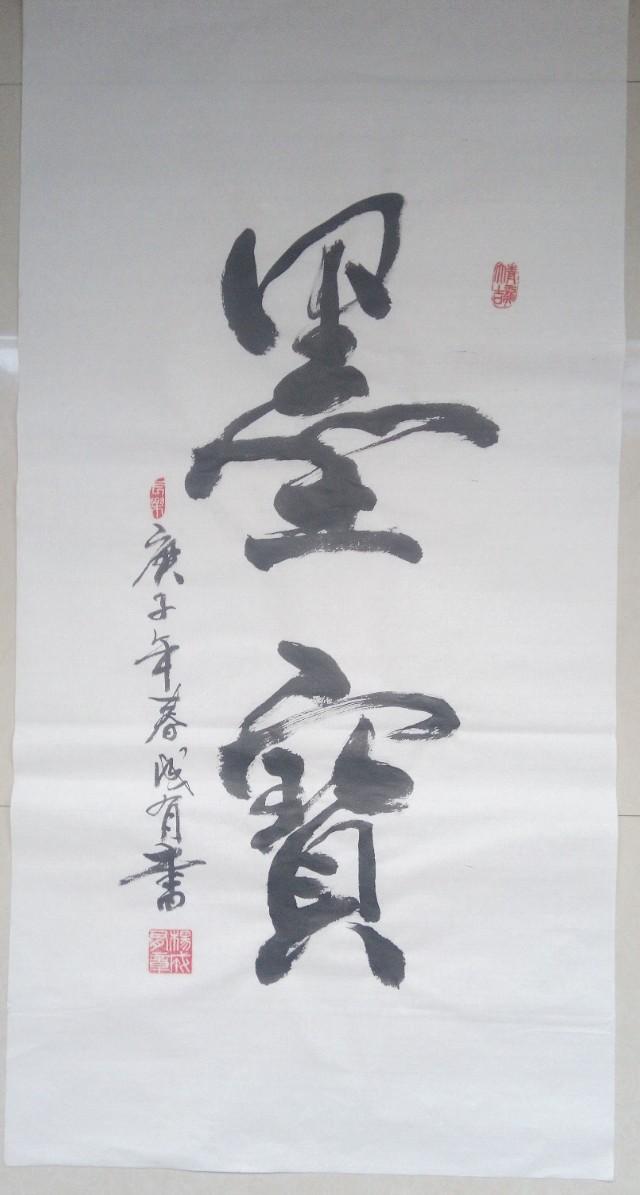 墨寶
庚子年春成有書